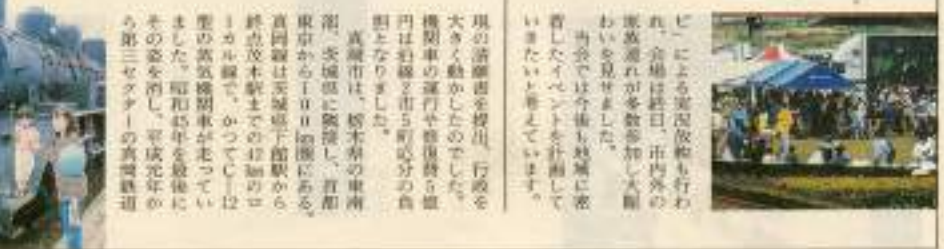 ビ」による実況放映も行わ
れ、会場は終日、市内外の
家族連れが多数参加し大賑
わいを見せました。
当会では今後も地域に密
着したイベントを計画して
いきたいと考えています。
現の請願書を提出、行政を
大きく動かしたのでした。
機関車の運行や修復費5億
円は沿線2市5町応分の負
担となりました。
真岡市は、栃木県の東南
部、茨城県に隣接し、首都
東京から100km圏にある。
真岡線は茨城県下館駅から
終点茂木駅までの42kmのロ
ーカル線で、かつてC-12
型の蒸気機関車が走ってい
ました。昭和45年を最後に
その姿を消し、平成元年か
ら第三セクターの真岡鉄道